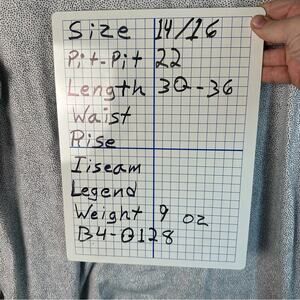 Size 14/16
Pit-Pit 22
Length 30-36
Waist
Rise
Iiseam
Legend
Weight 9 oz
B4-0128